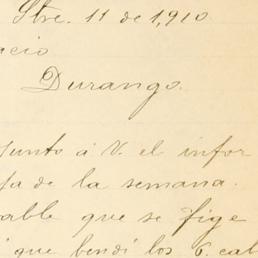 Sbre. 11 de 1,910
acio
Durango.
junto á V. el infor
ja de la semana.
able que se fige
i que bendí los 6. cab